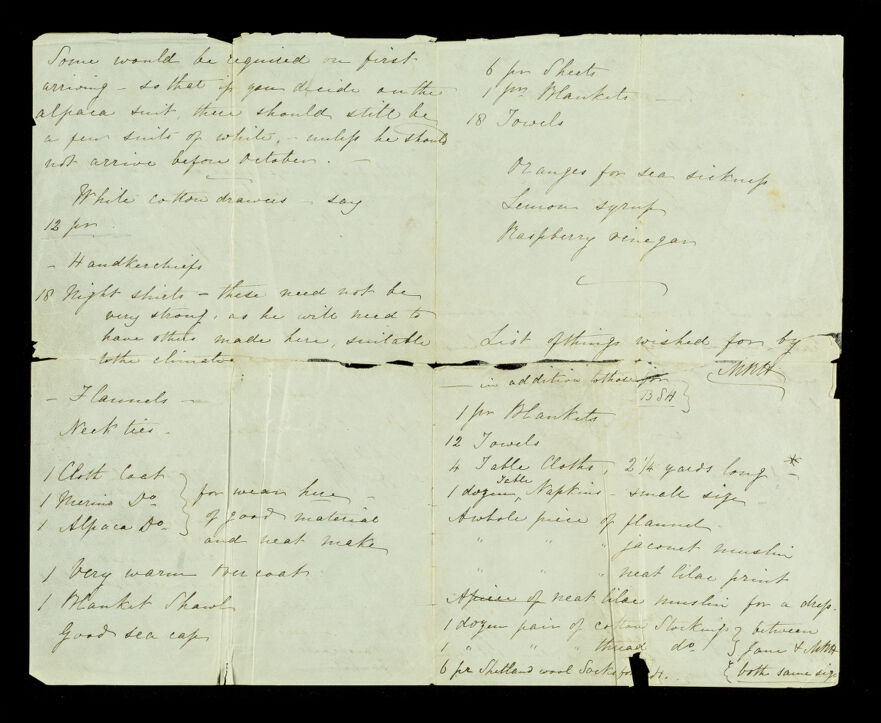 Some would be required on first
arriving - so that if you decide on the
alpaca suit, there should still be
a few suits of white, - unless he should
not arrive before October. -
White cotton drawers - say
12 pr.
- Handkerchiefs
18 Night shirts - these need not be
very strong, as he will need to
have others made here, suitable
to the climate
- Flannels -
Neck ties -
1 Cloth Coat
1 Merino Do
1 Alpaca Do
} for wear here -
of good material
and neat make
1 Very warm Over coat
1 Blanket Shawl
Good sea cap
6 pr Sheets
1 pr Blankets -
18 Towels
Oranges for sea sickness
Lemon syrup
Raspberry vinegar
List of things wished for by
MWH
- in addition to those for
BSH }
1 pr Blankets
12 Towels
4 Table Cloths, 2 1/4 yards long *
1 dozen Table Napkins - small size
A whole piece of flannel -
" " " jaconet muslin
" " " neat lilac print
A piece of neat lilac muslin for a dress.
1 dozen pair of cotton Stockings } between
1 " " " thread do. } Jane & MWH
6 pr Shetland wool Socks for { both same size